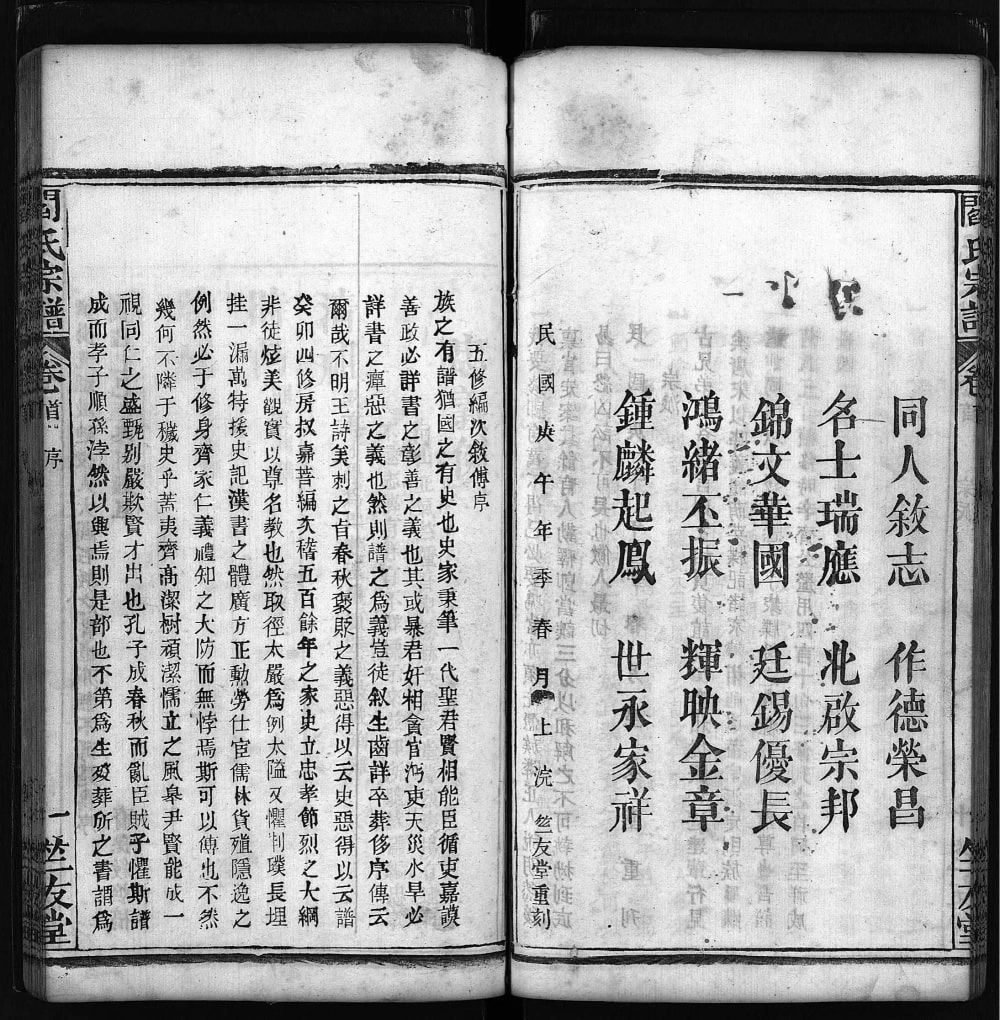 閻氏宗譜 卷首
同人敘志 作德榮昌
名士瑞應 兆啟宗邦
錦文華國 廷錫優長
鴻緒丕振 輝映金章
鍾麟起鳳 世永家祥
民國庚午年季春月上浣 竺友堂重刻
竺友堂
五修編次敘傳序
族之有譜猶國之有史也史家秉筆一代聖君賢相能臣循吏嘉謨
善政必詳書之彰善之義也其或暴君奸相貪官污吏天災水旱必
詳書之癉惡之義也然則譜之為義豈徒叙生齒詳卒葬侈序傳云
爾哉不明王詩美刺之旨春秋褒貶之義惡得以云史惡得以云譜
癸卯四修房叔鼐菩編次稽五百餘年之家史立忠孝節烈之大綱
非徒炫美觀實以尊名教也然取徑太嚴爲例太隘又懼荆璞長埋
挂一漏萬特援史記漢書之體廣方正勳勞仕宦儒林貨殖隱逸之
例然必于修身齊家仁義禮知之大防而無悖焉斯可以傳也不然
幾何不隣于穢史乎蓋夷齊高潔樹頑潔懦立之風皋尹賢能成一
視同仁之盛甄别嚴欺賢才出也孔子成春秋而亂臣賊子懼斯譜
成而孝子順孫浡然以興焉則是部也不第為生歿葬所之書謂爲
閻氏宗譜 卷首 序
一 竺友堂